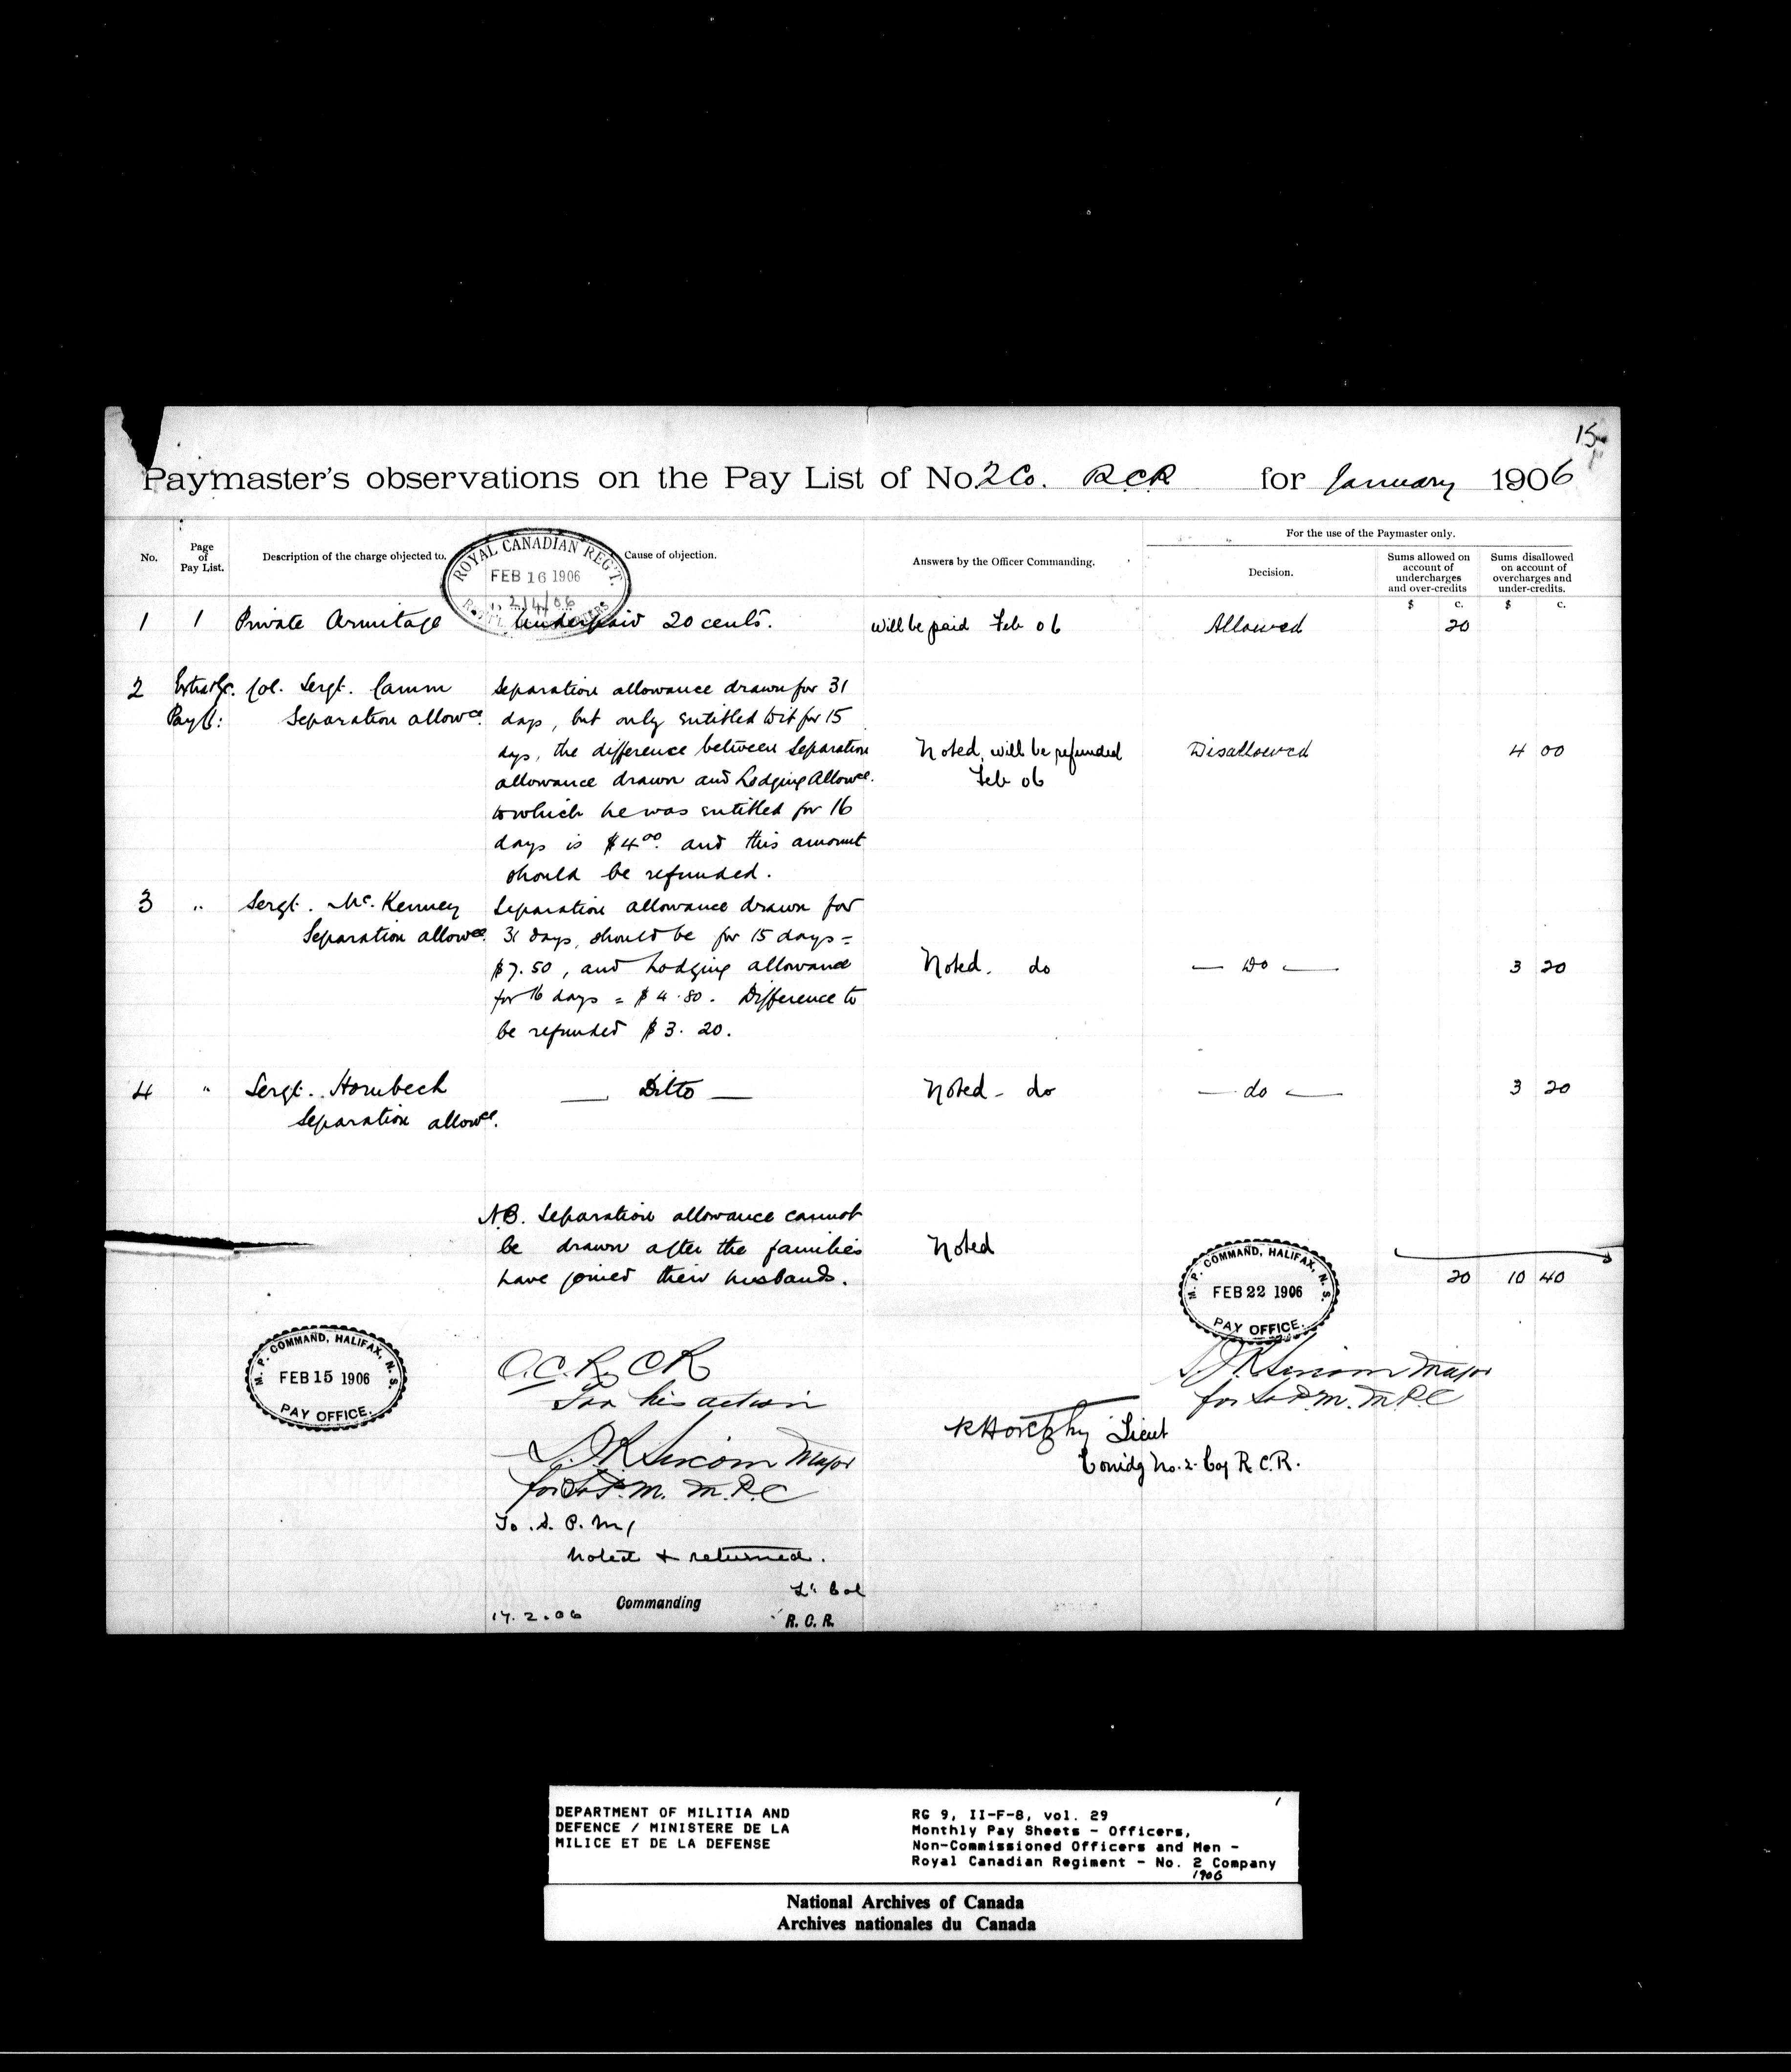 15
Paymaster's observations on the Pay List of No. 2 Co. RCR for January 1906
No.
Page of Pay List.
Description of the charge objected to.
Cause of objection.
Answers by the Officer Commanding.
For the use of the Paymaster only.
Decision.
Sums allowed on account of undercharges and over-credits
Sums disallowed on account of overcharges and under-credits.
$ c. $ c.
ROYAL CANADIAN REG'T.
FEB 16 1906
1 1 Private Armitage Underpaid 20 cents. will be paid Feb 06 Allowed 20
2 Col. Sergt. Camm Separation allowance drawn for 31
Separation allowce. days, but only entitled to it for 15
days, the difference between Separation Noted, will be refunded Disallowed 4 00
allowance drawn and Lodging Allowce. Feb 06
to which he was entitled for 16
days is $4.00. and this amount
should be refunded.
3 " Sergt. McKenney Separation allowance drawn for
Separation allowce. 31 days, should be for 15 days =
$7.50, and Lodging allowance Noted. do — Do — 3 20
for 16 days = $4.80. Difference to
be refunded $3.20.
4 " Sergt. Hornbech — Ditto — Noted - do — do — 3 20
Separation allowce.
N.B. Separation allowance cannot
be drawn after the families Noted
have joined their husbands.
20 10 40
M. P. COMMAND, HALIFAX, N. S.
FEB 22 1906
PAY OFFICE.
M. P. COMMAND, HALIFAX, N. S.
FEB 15 1906
PAY OFFICE.
O.C. R.C.R
For his action
Major
M.P.C
Major
M.P.C
Lieut
Comdg No. 2. Coy R.C.R.
To. S. P. M,
Noted & returned.
Lt Col
Commanding
17.2.06
R. C. R.
DEPARTMENT OF MILITIA AND
DEFENCE / MINISTERE DE LA
MILICE ET DE LA DEFENSE
RG 9, II-F-8, vol. 29
Monthly Pay Sheets - Officers,
Non-Commissioned Officers and Men -
Royal Canadian Regiment - No. 2 Company
1906
National Archives of Canada
Archives nationales du Canada